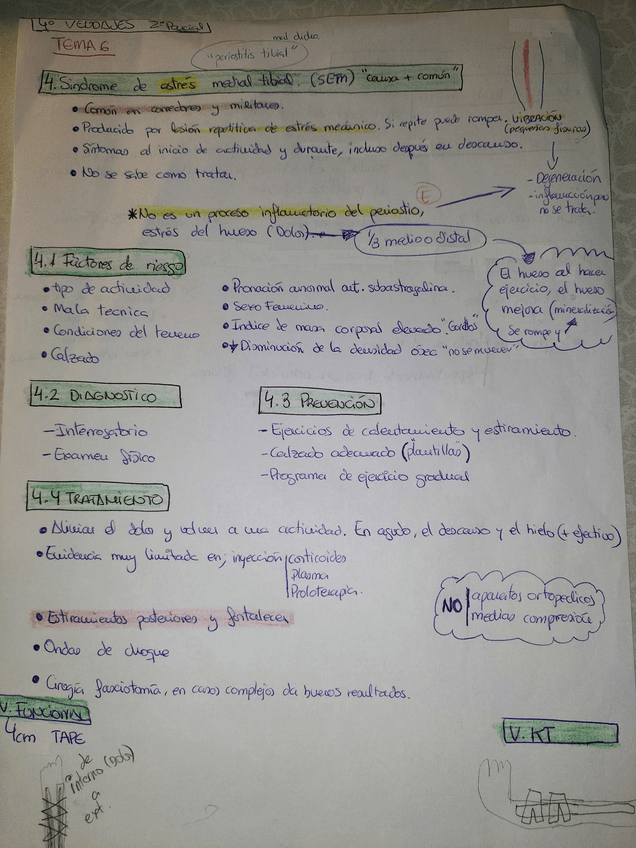 4º VENDAJES 2º Parcial
TEMA 6
mal dicho
"periostitis tibial"
4. Síndrome de estrés medial tibial. (SEM) "causa + común"
• Común en corredores y militares.
• Producido por lesión repetitiva de estrés mecánico. Si repite puede romper. VIBRACIÓN
(pequeñas fisuras)
• Síntomas al inicio de actividad y durante, incluso después en descanso.
• No se sabe como tratar.
- Degeneración
- inflamación pero
no se trata.
E
*No es un proceso inflamatorio del periostio,
estrés del hueso (Dolor) 1/3 medio o distal
4.1 Factores de riesgo
• tipo de actividad
• Mala tecnica
• Condiciones del terreno
• Calzado
• Pronación anormal art. subastragalina.
• Sexo Femenino.
• Indice de masa corporal elevado. "Gordos"
• Disminución de la densidad ósea "no se mueven"
El hueso al hacer
ejercicio, el hueso
mejora (mineralización
Se rompe y
4.2 DIAGNOSTICO
- Interrogatorio
- Examen físico
4.3 PREVENCIÓN
- Ejercicios de calentamiento y estiramiento.
- Calzado adecuado (plantillas)
- Programa de ejercicio gradual
4.4 TRATAMIENTO
• Aliviar el dolor y volver a una actividad. En agudo, el descanso y el hielo (+ efectivo)
• Evidencia muy limitada en; inyección corticoides
Plasma
Proloterapia.
NO aparatos ortopedicos
medias compresión
• Estiramientos posteriores y fortalecer
• Ondas de choque
• Cirugía fasciotomía, en casos complejos da buenos resultados.
V. FUNCIONAL
4cm TAPE
de
interno (Dolor)
a
ext.
V. KT